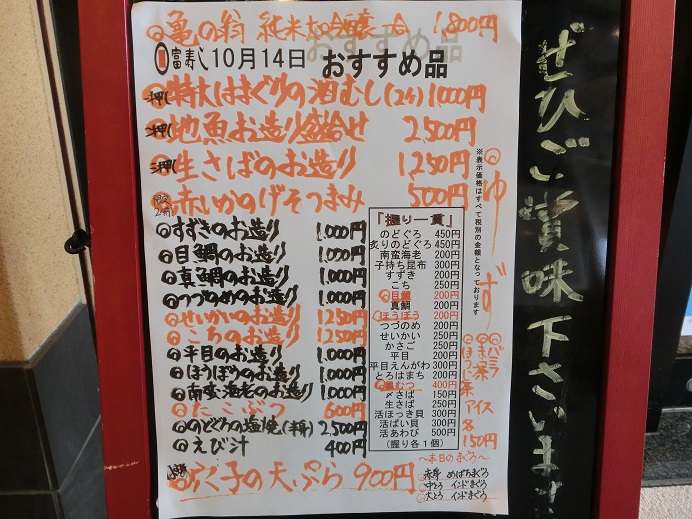 亀の翁 純米大吟醸 一合 1,800円
富寿し 10月14日 おすすめ品
押し 特大はまぐりの酒むし(2ケ) 1000円
押し 地魚お造り盛合せ 2,500円
押し 生さばのお造り 1,250円
赤いかのげそつまみ 500円
すずきのお造り 1,000円
目鯛のお造り 1,000円
真鯛のお造り 1,000円
つづのめのお造り 1,000円
せいかいのお造り 1250円
こちのお造り 1250円
平目のお造り 1,000円
ほうぼうのお造り 1,000円
南蛮海老のお造り 1,000円
たこぶつ 600円
のどぐろの塩焼(半身) 2,500円
えび汁 400円
穴子の天ぷら 900円
「握り一貫」
のどぐろ 450円
炙りのどぐろ 450円
南蛮海老 200円
子持ち昆布 300円
すずき 200円
こち 250円
目鯛 200円
真鯛 200円
ほうぼう 200円
つづのめ 200円
せいかい 250円
かさご 250円
平目 200円
平目えんがわ 300円
とろはまち 200円
むつ 400円
〆さば 150円
生さば 250円
活ほっき貝 300円
活ばい貝 300円
活あわび 500円
(握り各1個)
※表示価格はすべて税別の金額となっております
ゆず
バニラ
抹茶
ほうじ茶
アイス
各
150円
〜本日のまぐろ〜
赤身 めばちまぐろ
中とろ インドまぐろ
大とろ インドまぐろ
ぜひご賞味下さいませ